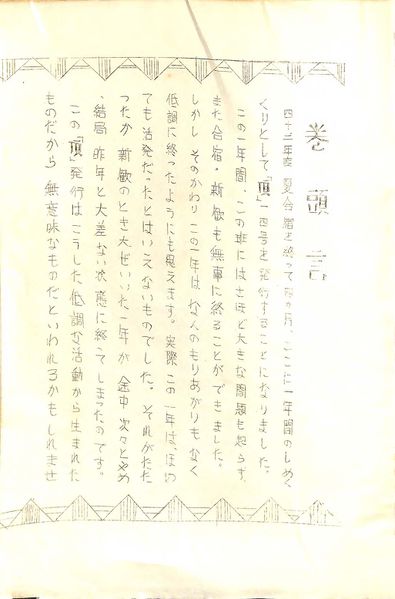 巻頭言
四十二年度 夏合宿を終って　ヶ月、ここに一年間のしめく
くりとして「頂」一四号を発行することになりました。
この一年間、この班にはさほど大きな問題も起らず、
また合宿・新歓も無事に終ることができました。
しかし そのかわり この一年は なんのもりあがりもなく
低調に終ったようにも思えます。実際この一年は、はい
ても活発だったとはいえないものでした。それがたた
ったか 新歓のとき大ぜいいた一年が 途中次々とやめ
、結局 昨年と大差ない状態に終ってしまったのです。
この「頂」発行はこうした低調な活動から生まれた
ものだから 無意味なものだといわれるかもしれませ